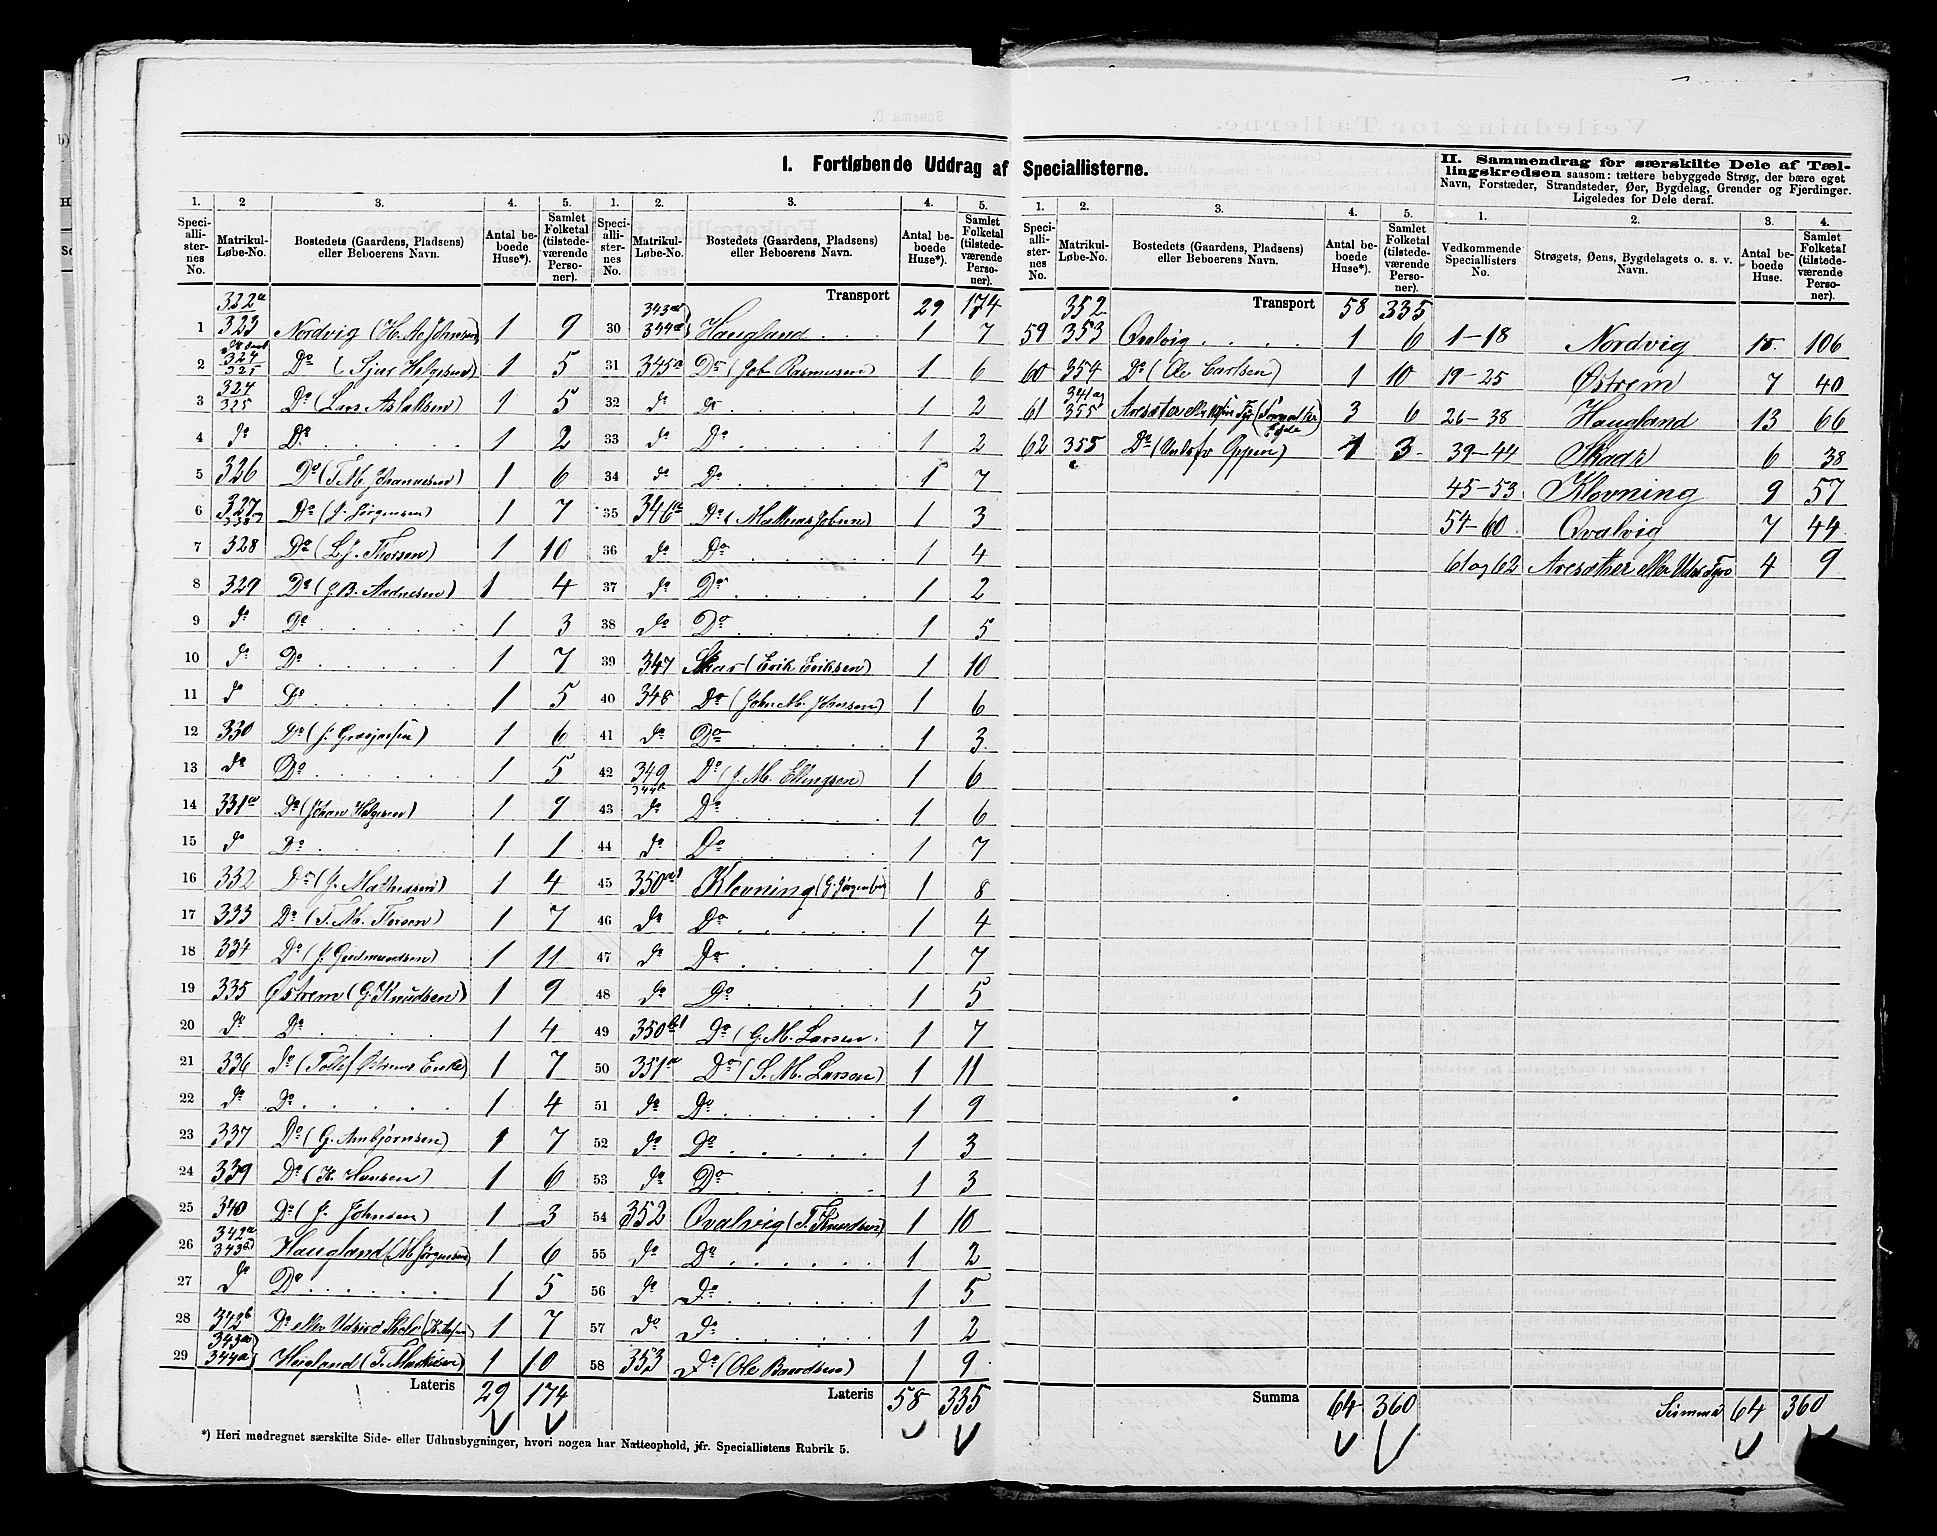 I. Fortløbende Uddrag af Speciallisterne.
II. Sammendrag for særskilte Dele af Tællingskredsen saasom: tættere bebyggede Strøg, der bære eget
Navn, Forstæder, Strandsteder, Øer, Bygdelag, Grender og Fjerdinger.
Ligeledes for Dele deraf.
1. 2 3. 4. 5.
Speciallisternes No. Matrikul-Løbe-No. Bostedets (Gaardens, Pladsens) eller Beboerens Navn. Antal beboede Huse*). Samlet Folketal (tilstedeværende Personer).
322a
1 323 Nordvig (H. A. Johnsen) 1 9
2 324 325 Do (Sjur Helgesen) 1 5
3 324 325 Do (Lars Aslaksen) 1 5
4 do Do 1 2
5 326 Do (T. M. Johannesen) 1 6
6 327 Do (J. Jørgensen) 1 7
7 328 Do (L. J. Thorsen) 1 10
8 329 Do (J. B. Aadnesen) 1 4
9 do Do 1 3
10 do Do 1 7
11 do Do 1 5
12 330 Do (J. ) 1 6
13 do Do 1 5
14 331a Do (Johan Helgesen) 1 9
15 do Do 1 1
16 332 Do (J. Mathiesen) 1 4
17 333 Do (T. M. Thorsen) 1 7
18 334 Do (J. Gudmundsen) 1 11
19 335 Østrem (G. Knudsen) 1 9
20 do Do 1 4
21 336 do ( Østrems Enke) 1 7
22 do Do 1 4
23 337 Do (G. Ambjørnsen) 1 7
24 339 Do (H. Hansen) 1 6
25 340 Do (J. Johnsen) 1 3
26 342a 343a Haugland (M. Jørgensen) 1 6
27 do Do 1 5
28 342b Do 1 7
29 343 344a Haugland (T. ) 1 10
Lateris 29 174
1. 2. 3. 4. 5.
Speciallisternes No. Matrikul-Løbe-No. Bostedets (Gaardens, Pladsens) eller Beboerens Navn. Antal beboede Huse*). Samlet Folketal (tilstedeværende Personer).
Transport 29 174
30 343 344a Haugland 1 7
31 345a Do (Job Rasmusen) 1 6
32 do do 1 2
33 do Do 1 2
34 do Do 1 7
35 346a Do (Mathias Jobsen) 1 3
36 do Do 1 4
37 do Do 1 2
38 do Do 1 5
39 347 Skar (Erik Eriksen) 1 10
40 348 Do (John M. Johnsen) 1 6
41 do Do 1 3
42 349 Do (J. M. Ellingsen) 1 6
43 do Do 1 6
44 do Do 1 7
45 350 Klovning (G. Jørgensen) 1 8
46 do Do 1 4
47 do Do 1 7
48 do Do 1 5
49 350 Do (G. M. Larsen 1 7
50 351a Do (S. M. Larsen) 1 11
51 do Do 1 9
52 do Do 1 3
53 do Do 1 3
54 352 Qvalvig (T. Knudsen) 1 10
55 do Do 1 2
56 do Do 1 5
57 do Do 1 2
58 353 Do (Ole Baardsen) 1 9
Lateris 58 335
*) Heri medregnet særskilte Side- eller Udhusbygninger, hvori nogen har Natteophold, jfr. Speciallistens Rubrik 5.
1. 2. 3. 4. 5.
Speciallisternes No. Matrikul-Løbe-No. Bostedets (Gaardens, Pladsens) eller Beboerens Navn. Antal beboede Huse*). Samlet Folketal (tilstedeværende Personer).
352 Transport 58 335
59 353 Qvalvig 1 6
60 354 Do (Ole Carlsen) 1 10
61 341 og 355 3 6
62 355 Do 1 3
Summa 64 360
1. 2. 3. 4.
Vedkommende Speciallisters No. Strøgets, Øens, Bygdelagets o. s. v. Navn. Antal beboede Huse. Samlet Folketal (tilstedeværende Personer).
1-18 Nordvig 18 106
19-25 Østrem 7 40
26-38 Haugland 13 66
39-44 Skaar 6 38
45-53 Klovning 9 57
54-60 Qvalvig 7 44
61 og 62 4 9
Summa 64 360